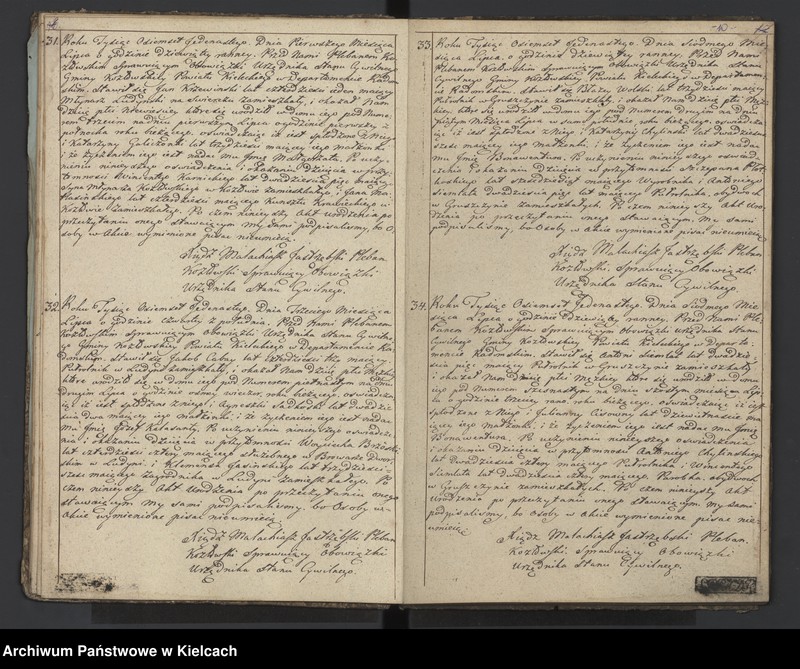 31. Roku Tysiąc Osiemset Jedenastego. Dnia Pierwszego Miesiąca
Lipca o godzinie dziewiątej ranney. Przed Nami Plebanem Ko-
złowskim Sprawuiącym Obowiązki Urzędnika Stanu Cywilnego
Gminy Kozłowskiey Powiatu Kieleckiego w Departamencie Radom-
skim. Stawił się Jan lat czterdzieści ieden maiący
Młynarz na zamieszkały, i okazał Nam
Dziecię płci które się urodziło w Domu iego pod Nume-
rem trzecim na dniu Lipca o godzinie pierwszey z
północka roku bieżącego, oświadczaiąc iż iest spłodzone z Niego
i Katarzyny lat trzydzieści maiącey iego małżonki
i że życzeniem iego iest nadać mu Imię Małgorzata. Po uczy-
nieniu ninieyszego oświadczenia i okazaniu Dziecięcia w przy-
tomności Wincentego lat dwadzieścia pięć maiącego
Syna Młynarza w zamieszkałego, i Jana
lat czterdzieści maiącego Kunsztu Krawieckiego w
zamieszkałego. Po czem ninieyszy Akt Urodzenia po
przeczytaniu onego Stawaiącym My Sami podpisalismy, bo O-
soby w Akcie wymienione pisać nieumieią.
Xiądz Małachiasz Jastrzębski Pleban
Kozłowski Sprawuiący Obowiązki
Urzędnika Stanu Cywilnego.
32. Roku Tysiąc Osiemset Jedenastego. Dnia Trzeciego Miesiąca
Lipca o godzinie czwartey z południa. Przed Nami Plebanem
Kozłowskim Sprawuiącym Obowiązki Urzędnika Stanu Cywilne-
go Gminy Kozłowskiey Powiatu Kieleckiego w Departamencie Ra-
domskim. Stawił się Jakob lat trzydzieści trzy maiący
Pułrolnik w zamieszkały, i okazał Nam Dziecię płci Męzkiey
które urodziło się w domu iego pod Numerem piętnastym na dniu
drugim Lipca o godzinie osmey wieczor, roku bieżącego, oświadcza-
iąc iż iest spłodzone z niego, i Agnieszki lat dwadzie-
ścia dwa maiącey iego małżonki; i że życzeniem iego iest nadać
mu Imię Jozef Kalasanty. Po uczynieniu ninieyszego oświadcze-
nia, i okazaniu Dziecięcia w przytomności Woyciecha
lat czterdzieści cztery maiącego służebnego w Browarze Dwor-
skim w i Klemensa Gasińskiego lat trzydzieści
sześć maiącego Zagrodnika w zamieszkałego. Po
czem ninieyszy Akt Urodzenia po przeczytaniu onego
Stawaiącym My sami podpisalismy, bo Osoby w
Akcie wymienione pisać nieumieią.
Xiądz Małachiasz Jastrzębski Pleban
Kozłowski Sprawuiący Obowiązki
Urzędnika Stanu Cywilnego.
33. Roku Tysiąc Osiemset Jedenastego. Dnia Siodmego Mie-
siąca Lipca o godzinie dziewiątey ranney. Przed Nami
Plebanem Kozłowskim Sprawuiącym Obowiązki Urzędnika Stanu
Cywilnego Gminy Kozłowskiey Powiatu Kieleckiego w Departamen-
cie Radomskim. Stawił się Błażey Wolski lat trzydzieści maiący
Pułrolnik w Gruszczynie zamieszkały, i okazał Nam Dziecię płci Mę-
zkiey, które się urodziło w domu iego pod Numerem drugim na dniu
piątym Miesiąca Lipca w samo południe, roku bieżącego, oświadcza-
iąc iż iest spłodzone z Niego i Katarzyny Chylińskiey lat dwadzieścia
sześć maiącey iego Małżonki, i że życzeniem iego iest nadać
mu Imię Bonawentura. Po uczynieniu ninieyszego oświad-
czenia i okazaniu Dziecięcia w przytomności Szczepana
lat maiącego Wyrobnika, i
lat dwadzieścia pięć maiącego Pułrolnika, obydwoch
w Gruszczynie zamieszkałych. Po czem ninieyszy Akt Uro-
dzenia po przeczytaniu onego Stawaiącym My Sami
podpisalismy, bo Osoby w akcie wymienione pisać nieumieią.
Xiądz Małachiasz Jastrzębski Pleban
Kozłowski. Sprawuiący Obowiązki
Urzędnika Stanu Cywilnego.
34. Roku Tysiąc Osiemset Jedenastego. Dnia Siodmego Mie-
siąca Lipca o godzinie dziewiątey ranney. Przed Nami Ple-
banem Kozłowskim Sprawuiącym Obowiązki Urzędnika Stanu
Cywilnego Gminy Kozłowskiey Powiatu Kieleckiego w Departa-
mencie Radomskim. Stawił się Antoni lat dwadzie-
ścia pięć maiący Pułrolnik w Gruszczynie zamieszkały
i okazał Nam Dziecię płci Męzkiey które się urodziło w domu
iego pod Numerem Szesnastym na dniu Szostym miesiąca Lip-
ca o godzinie trzeciey rano roku bieżącego, oświadczaiąc iż iest
spłodzone z Niego i Julianny lat dziewiętnaście ma-
iącey iego małżonki; i że życzeniem iego iest nadać mu Imię
Bonawentura. Po uczynieniu ninieyszego oświadczenia
i okazaniu Dziecięcia w przytomności Antoniego Chylińskiego
lat dwadzieścia cztery maiącego Pułrolnika i Wincentego
lat dwadzieścia maiącego Parobka, obydwoch
w Gruszczynie zamieszkałych. Po czem ninieyszy Akt
Urodzenia po przeczytaniu onego Stawaiącym, my sami
podpisalismy, bo Osoby w akcie wymienione pisać nie-
umieią.
Xiądz Małachiasz Jastrzębski Pleban
Kozłowski. Sprawuiący Obowiązki
Urzędnika Stanu Cywilnego.
Archiwum Państwowe w Kielcach